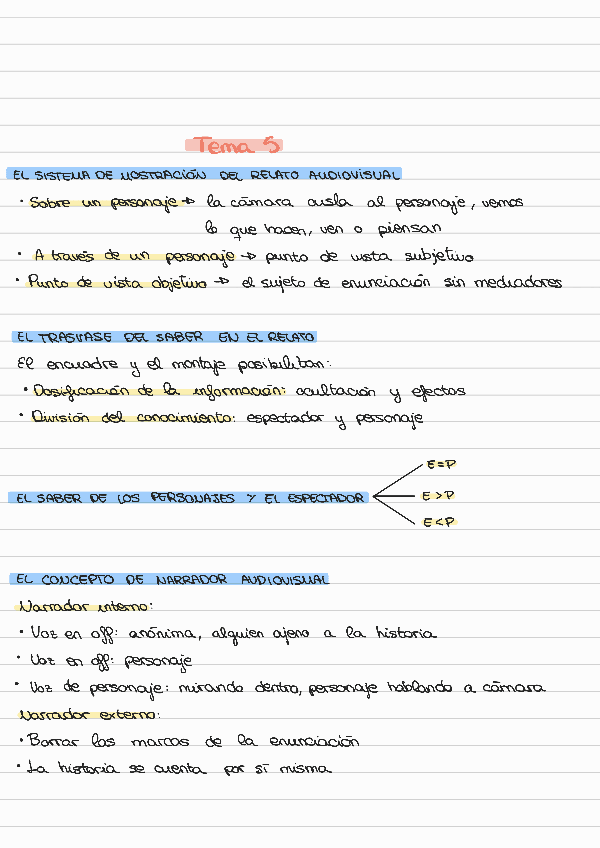 Tema 5
EL SISTEMA DE MOSTRACIÓN DEL RELATO AUDIOVISUAL
· Sobre un personaje → la cámara aísla al personaje, vemos
lo que hacen, ven o piensan
· A través de un personaje → punto de vista subjetivo
· Punto de vista objetivo → el sujeto de enunciación sin mediadores
EL TRASVASE DEL SABER EN EL RELATO
El encuadre y el montaje posibilitan:
· Dosificación de la información: ocultación y efectos
· División del conocimiento: espectador y personaje
EL SABER DE LOS PERSONAJES Y EL ESPECTADOR
E=P
E>P
E<P
EL CONCEPTO DE NARRADOR AUDIOVISUAL
Narrador interno:
· Voz en off: anónima, alguien ajeno a la historia
· Voz en off: personaje
· Voz de personaje: mirando dentro, personaje hablando a cámara
Narrador externo:
· Borrar las marcas de la enunciación
· La historia se cuenta por sí misma